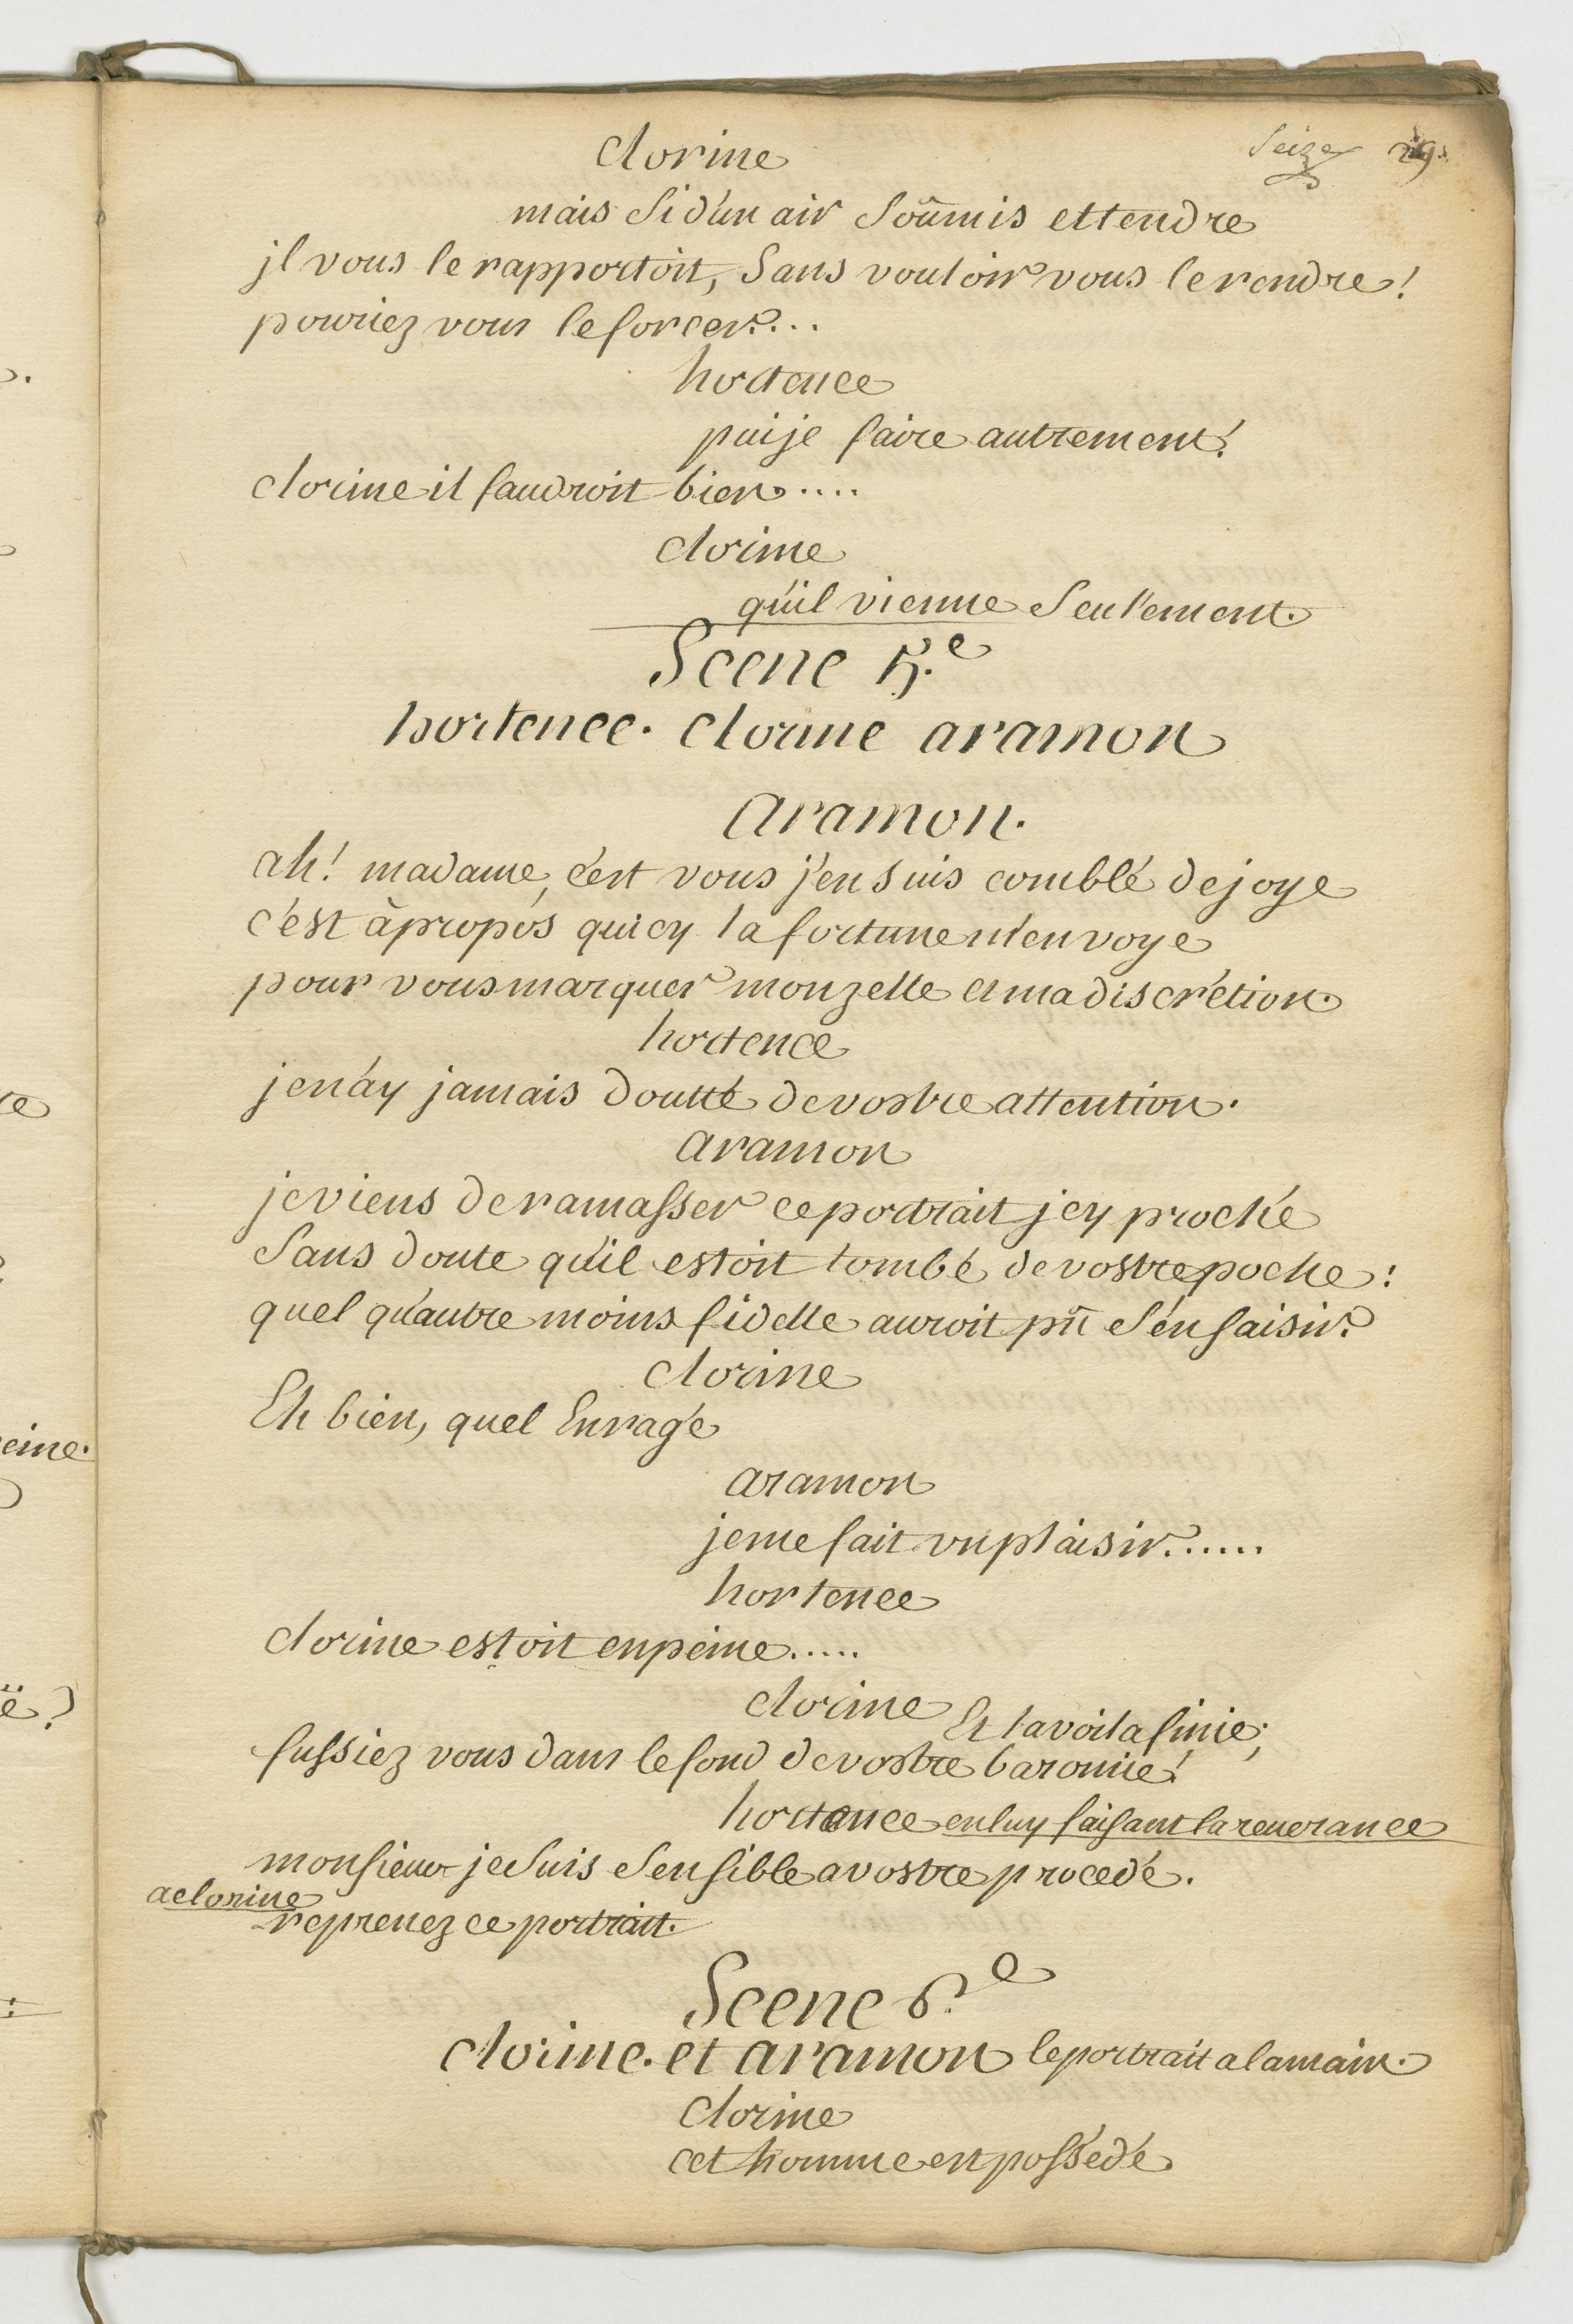 Seize 29.
clorine
mais si d'un air soûmis et tendre
jl vous le rapportoit, sans vouloir vous le rendre!
pouriez vous le forcer?...
hortence
puije faire autrement?
clorine il faudroit bien....
clorine
qu'il vienne seulement.
Scene 5.e
hortence. clorine aramon
aramon.
ah! madame, c'est vous j'en suis comblé de joye
c'est àpropos qu'icy la fortune m'envoye
pour vous marquer mon zelle et ma discrétion.
hortence
je n'ay jamais doutté de vostre attention.
aramon
je viens de ramasser ce portrait jcy proche
sans doute qu'il estoit tombé de vostre poche:
quel qu'autre moins fidelle auroit pû s'en saisir.
clorine
Eh bien, quel Enragé
aramon
je me fait vn plaisir......
hortence
clorine estoit en peine.....
clorine
Et la voila finie;
fussiez vous dans le fond de vostre baronie!
hortance en luy faisant la reuerance
monsieur je suis sensible a vostre procedé.
a clorine
reprenez ce portrait.
Scene 6.e
clorine. et aramon le portrait a la main.
clorine
cet homme est possédé